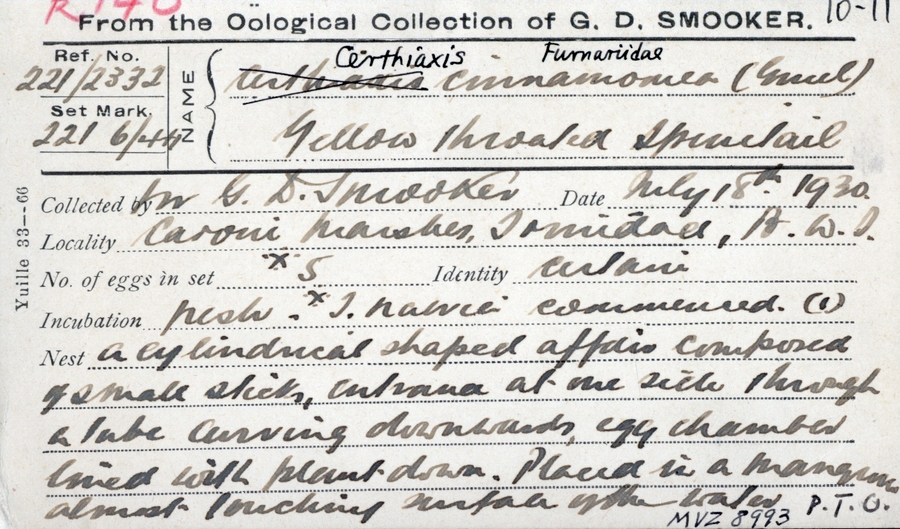 R.140 10-11
From the Oölogical Collection of G. D. SMOOKER.
Certhiaxis Furnariidae
Ref. No.
221/2332
NAME
cinnamomea (Gmel)
Set Mark.
221 6/44
Yellow throated Spinetail
Collected by Mr G. D. Smooker Date July 18th 1930.
Locality Caroni Marshes, Trinidad, B. W. I.
No. of eggs in set x 5 Identity certain
Incubation fresh - x I. naevia commenced. (1)
Nest a cylindrical shaped affair composed
of small sticks, entrance at one side through
a tube curving downwards, egg chamber
lined with plant down. Placed in a mangrove
almost touching surface of the water
MVZ 8993 P.T.O.
Yuille 33--66